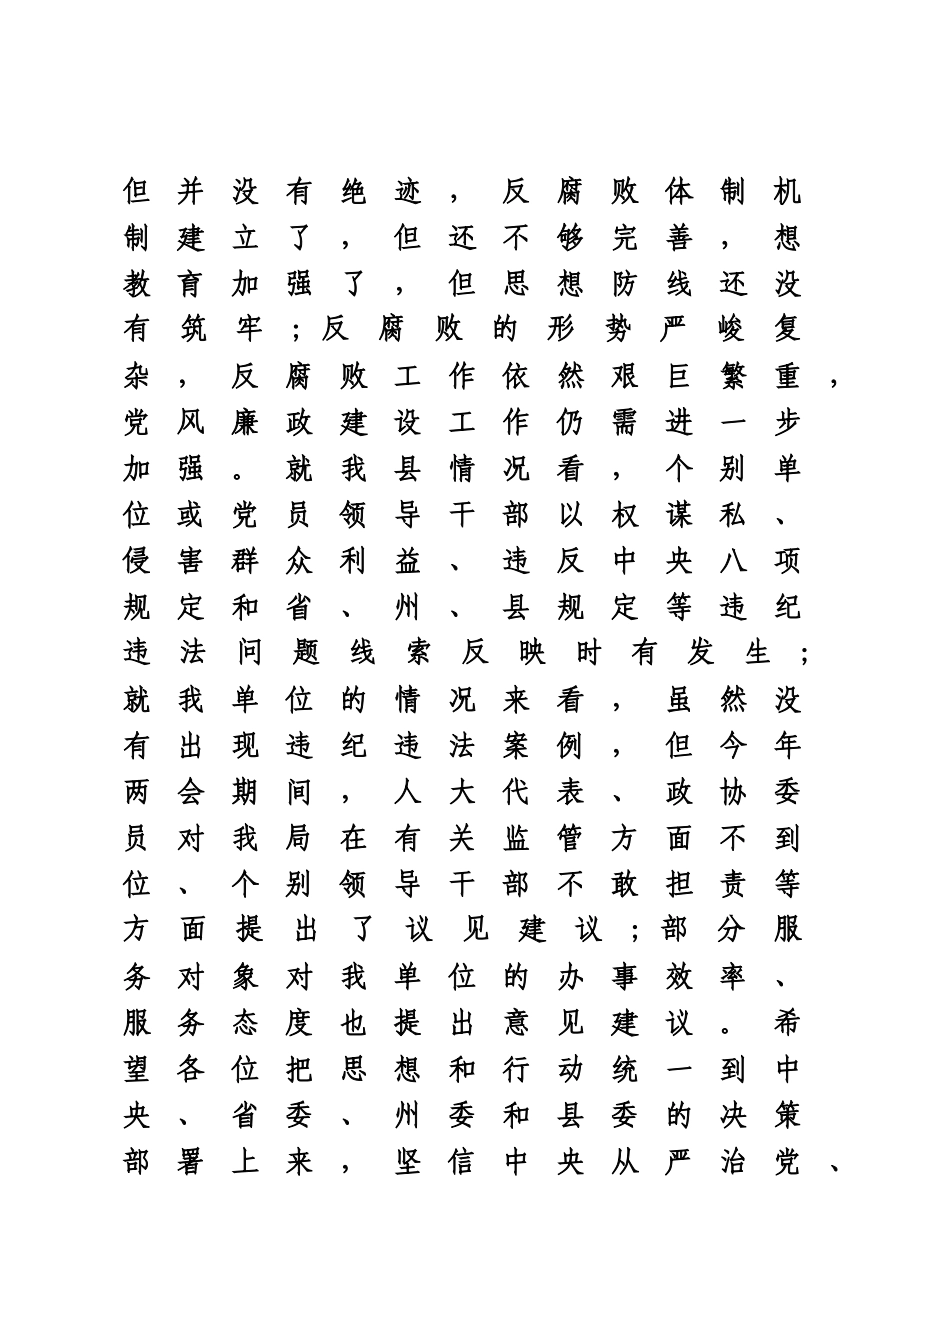 但并没有绝迹，反腐败体制机
制建立了，但还不够完善，想
教育加强了，但思想防线还没
有筑牢;反腐败的形势严峻复
杂，反腐败工作依然艰巨繁重，
党风廉政建设工作仍需进一步
加强。就我县情况看，个别单
位或党员领导干部以权谋私、
侵害群众利益、违反中央八项
规定和省、州、县规定等违纪
违法问题线索反映时有发生;
就我单位的情况来看，虽然没
有出现违纪违法案例，但今年
两会期间，人大代表、政协委
员对我局在有关监管方面不到
位、个别领导干部不敢担责等
方面提出了议见建议;部分服
务对象对我单位的办事效率、
服务态度也提出意见建议。希
望各位把思想和行动统一到中
央、省委、州委和县委的决策
部署上来，坚信中央从严治党、